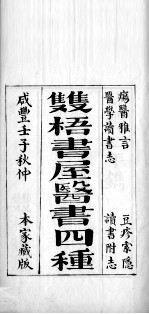 瘍醫雅言　豆疹索隱
醫學讀書志　讀書附志
雙梧書屋醫書四種
咸豐壬子秋仲　本家藏版